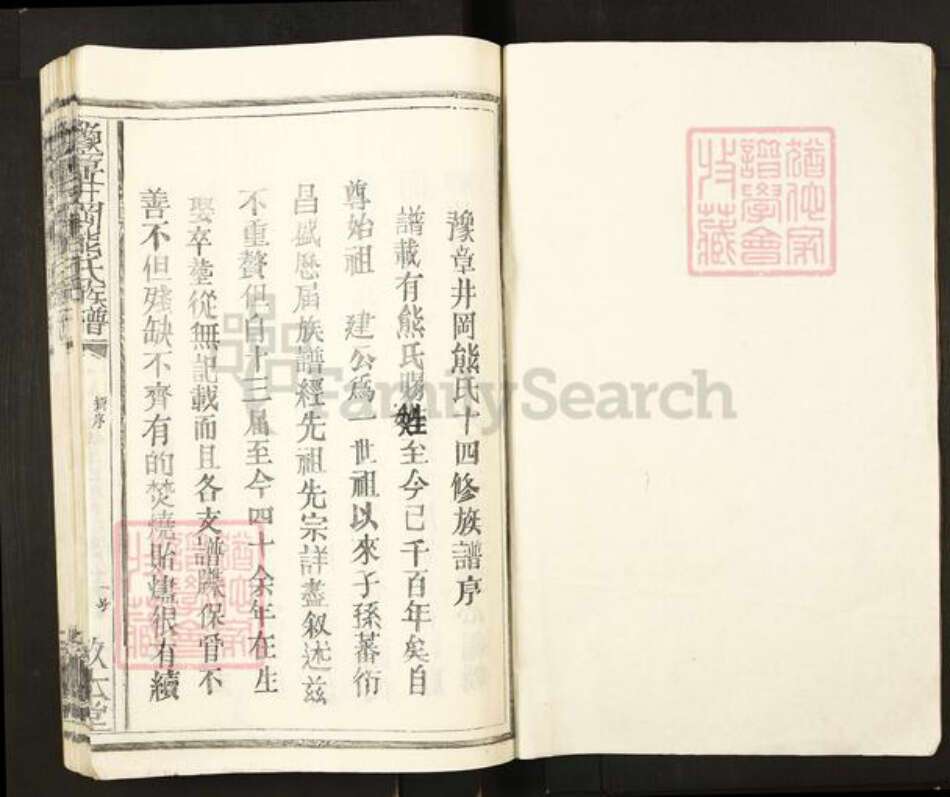 豫章井岡熊氏十四修族譜序
譜載有熊氏賜姓至今已千百年矣自
尊始祖 建公爲一世祖以來子孫蕃衍
昌盛歷届族譜經先祖先宗詳盡叙述茲
不重贅但自十三届至今四十余年在生
娶卒塟從無記載而且各支譜牒保管不
善不但殘缺不齊有的焚燒貽燼很有續
豫章井岡熊氏族譜
新序
一号
FamilySearch
譜學會
收藏